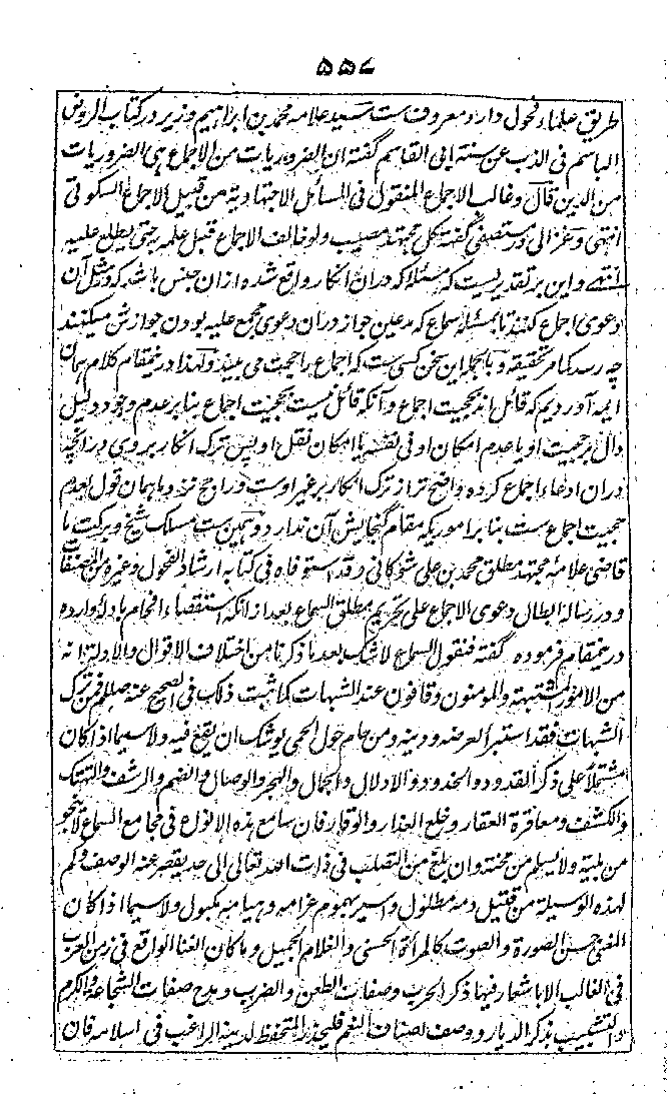 ۵۵۷
طریق علماء فحول دارد معروف ست سید علامه محمد بن ابراهیم وزیر در کتاب الروض
الباسم فی الذب عن سنة ابی القاسم گفته ان الضروریات من الاجماع هی الضروریات
من الدین قال وغالب الاجماع المنقول فی المسائل الاجتهادیة من قبیل الاجماع السکوتی
انتهی وغزالی در مستصفی گفته کل مجتهد مصیب ولو خالف الاجماع قبل علمه حتی یطلع علیه
انتهی و این بر تقدیریست که مسئله که دران انکار واقع شده ازان جنس باشد که در مثل آن
دعوی اجماع کنند تا بمسئله سماع که مدعین جواز دران دعوی مجمع علیه بودن جوازش میکنند
چه رسد کما مر تحقیقه و بالجمله این سخن کسی ست که اجماع را حجت می بیند و لهذا درینمقام کلام همان
ایمه آوردیم که قائل اند بحجیت اجماع و آنکه قائل نیست بحجیت اجماع بنا بر عدم وجود دلیل
دال بر حجیت او یا عدم امکان او فی نفسه یا امکان نقل او پس ترک انکار بر وی در آنچه
دران ادعاء اجماع کرده واضح تر از ترک انکار بر غیر اوست و راجح نزد ما همان قول بعدم
حجیت اجماع ست بنا بر اموریکه مقام گنجایش آن ندارد و همین ست مسلک شیخ و برکت ما
قاضی علامه مجتهد مطلق محمد بن علی شوکانی وقد استوفاه فی کتابه ارشاد الفحول وغیره من المصنفات
و در رساله ابطال دعوی الاجماع علی تحریم مطلق السماع بعد از آنکه استقصاء افحام بادله وارده
درینمقام فرموده گفته فنقول السماع لا شک بعد ما ذکرنا من اختلاف الاقوال والادلة انه
من الامور المشتبهة والمومنون وقافون عند الشبهات کما ثبت ذلک فی الصحیح عنه صللم فمن ترک
الشبهات فقد استبرأ لعرضه ودینه ومن حام حول الحمی یوشک ان یقع فیه ولا سیما اذا کان
مشتملا علی ذکر القدود والخدود والادلال والجمال والهجر والوصال والضم والرشف والتهتک
والکشف ومعاقرة العقار وخلع العذار والوقار فان سامع هذه الانواع فی مجامع السماع لا ینجو
من بلیة ولا یسلم من محنة وان بلغ من التصلب فی ذات الله تعالی الی حد یقصر عنه الوصف وکم
لهذه الوسیلة من قتیل دمه مطلول واسیر بهموم غرامه وهیامه مکبول ولا سیما اذا کان
المغنی حسن الصورة والصوت کالمرأة الحسنی والغلام الجمیل وما کان الغنا الواقع فی زمن العرب
فی الغالب الا باشعار فیها ذکر الحرب وصفات الطعن والضرب ومدح صفات الشجاعة والکرم
والتشبیب بذکر الدیار ووصف اصناف النعم فلیحذر المتحفظ لدینه الراغب فی اسلامه فان